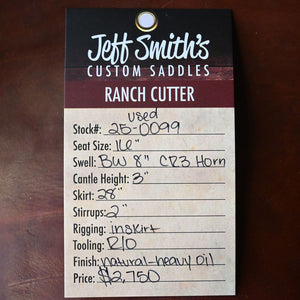 Jeff Smith's
CUSTOM SADDLES
RANCH CUTTER
used
Stock#: 25-0099
Seat Size: 16"
Swell: BW 8" CR3 Horn
Cantle Height: 3"
Skirt: 28"
Stirrups: 2"
Rigging: inskirt
Tooling: R/O
Finish: natural-heavy oil
Price: $2,750